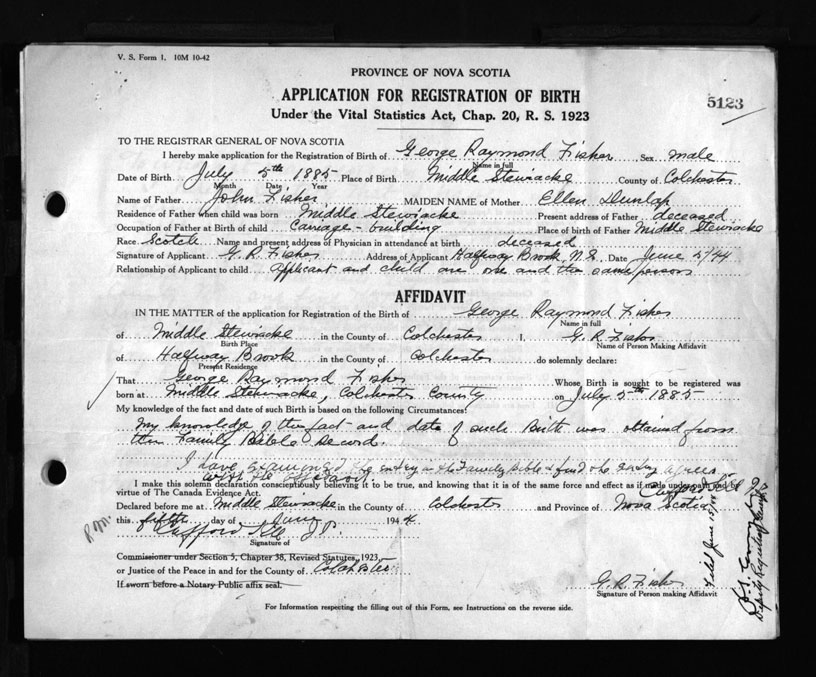 V. S. Form 1. 10M 10-42
PROVINCE OF NOVA SCOTIA
APPLICATION FOR REGISTRATION OF BIRTH
5123
Under the Vital Statistics Act, Chap. 20, R. S. 1923
TO THE REGISTRAR GENERAL OF NOVA SCOTIA
I hereby make application for the Registration of Birth of George Raymond Fisher Sex male
Name in full
Date of Birth July 5th 1885 Place of Birth Middle Stewiacke County of Colchester
Month Date Year
Name of Father John Fisher MAIDEN NAME of Mother Ellen Dunlap
Residence of Father when child was born Middle Stewiacke Present address of Father deceased
Occupation of Father at Birth of child Carriage-building Place of birth of Father Middle Stewiacke
Race Scotch Name and present address of Physician in attendance at birth deceased
Signature of Applicant G. R. Fisher Address of Applicant Halfway Brook, N.S. Date June 5/44
Relationship of Applicant to child applicant and child are one and the same person
AFFIDAVIT
IN THE MATTER of the application for Registration of the Birth of George Raymond Fisher
Name in full
of Middle Stewiacke in the County of Colchester I, G. R. Fisher
Birth Place Name of Person Making Affidavit
of Halfway Brook in the County of Colchester do solemnly declare:
Present Residence
That George Raymond Fisher Whose Birth is sought to be registered was
born at Middle Stewiacke, Colchester County on July 5th 1885
My knowledge of the fact and date of such Birth is based on the following Circumstances:
My knowledge of the fact and date of such Birth was obtained from
the Family Bible Record.
I have examined the entry in the Family Bible & find the entry agrees
with the
I make this solemn declaration conscientiously believing it to be true, and knowing that it is of the same force and effect as if made under oath by
virtue of The Canada Evidence Act.
Declared before me at Middle Stewiacke in the County of Colchester and Province of Nova Scotia
this fifth day of June 1944
J.P.
Signature of
Commissioner under Section 5, Chapter 38, Revised Statutes, 1923
or Justice of the Peace in and for the County of Colchester
If sworn before a Notary Public affix seal.
G. R. Fisher
Signature of Person making Affidavit
For Information respecting the filling out of this Form, see Instructions on the reverse side.
Filed June
Deputy Registrar